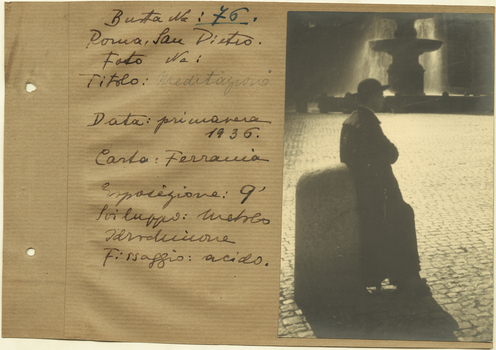 Busta No: 76.
Roma. San Pietro.
Foto No:
Titolo: Meditazione
Data: primavera
1936.
Carta: Ferrania
Esposizione: 9'
Sviluppo: Metolo
Idrochinone
Fissaggio: acido.